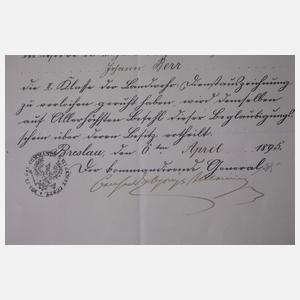 Johann Herr
die 2. Klasse der Landwehr-Dienstauszeichnung
zu verleihen geruht haben wird demselben
auf Allerhöchsten Befehl dieser Beglaubigungs-
schein über deren Besitz ertheilt.
Breslau, den 6ten April 1895.
Der kommandirende General